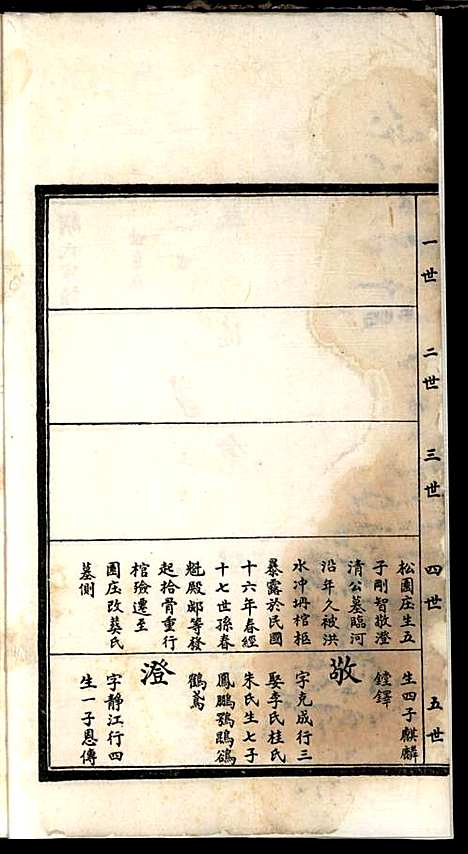 一世
二世
三世
四世
五世
松園庄生五
子剛智敬澄
清公墓臨河
沿年久被洪
水冲坍棺柩
暴露於民國
十六年春經
十七世孫春
魁殿邮等發
起拾骨重行
棺殮遷至
園庄改葬氏
墓側
生四子麒麟
鏜鐸
敬
字克成行三
娶李氏桂氏
朱氏生七子
鳳鵬鶚鵾鵒
鶴鳶
澄
字靜江行四
生一子恩傳